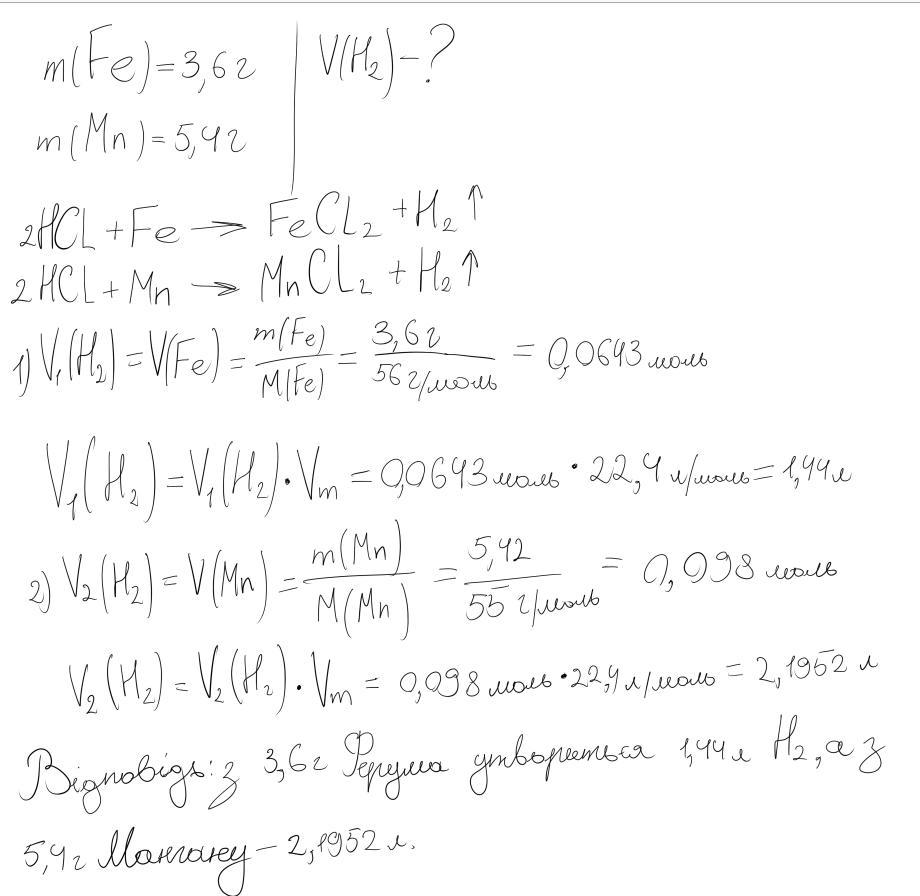 m(Fe)=3,6г | V(H₂)-?
m(Mn)=5,4г
2HCL+Fe → FeCL₂+H₂↑
2HCL+Mn → MnCL₂+H₂↑
1) V₁(H₂)=V(Fe)=m(Fe)/M(Fe)=3,6г/56г/моль=0,0643моль
V₁(H₂)=V₁(H₂)·Vm=0,0643моль·22,4л/моль=1,44л
2) V₂(H₂)=V(Mn)=m(Mn)/M(Mn)=5,4г/55г/моль=0,098моль
V₂(H₂)=V₂(H₂)·Vm=0,098моль·22,4л/моль=2,1952л
Відповідь: з 3,6г Ферума утвориться 1,44л H₂, а з
5,4г Мангану – 2,1952л.